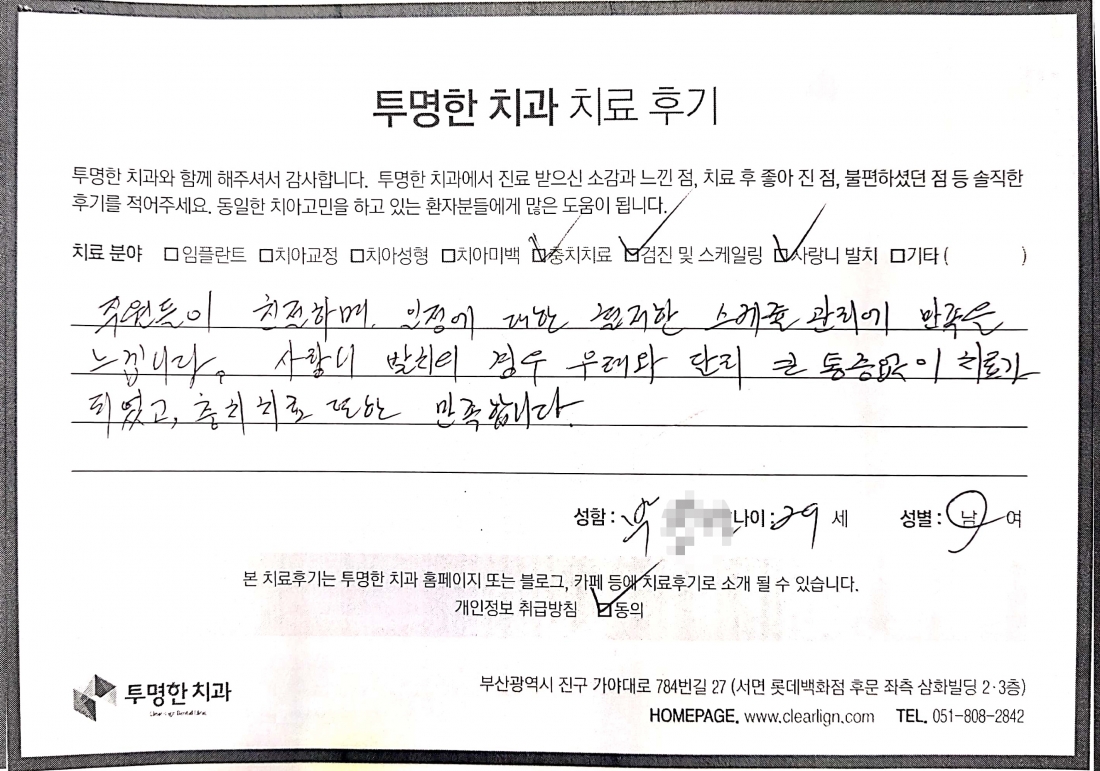 투명한 치과 치료 후기
투명한 치과와 함께 해주셔서 감사합니다. 투명한 치과에서 진료 받으신 소감과 느낀 점, 치료 후 좋아 진 점, 불편하셨던 점 등 솔직한
후기를 적어주세요. 동일한 치아고민을 하고 있는 환자분들에게 많은 도움이 됩니다.
치료 분야 □임플란트 □치아교정 □치아성형 □치아미백 ☑충치치료 ☑검진 및 스케일링 ☑사랑니 발치 □기타 ( )
직원들이 친절하며, 일정에 대한 철저한 스케쥴 관리에 만족을
느낍니다. 사랑니 발치의 경우 우려와 달리 큰 통증없이 치료가
되었고, 충치치료 또한 만족합니다.
성함 : 나이 : 29 세 성별 : 남 여
본 치료후기는 투명한 치과 홈페이지 또는 블로그, 카페 등에 치료후기로 소개 될 수 있습니다.
개인정보 취급방침 ☑동의
투명한 치과
부산광역시 진구 가야대로 784번길 27 (서면 롯데백화점 후문 좌측 삼화빌딩 2·3층)
HOMEPAGE. www.clearlign.com TEL. 051-808-2842